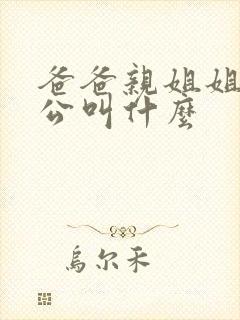 爸爸親姐姐
公叫什麼
烏尔禾